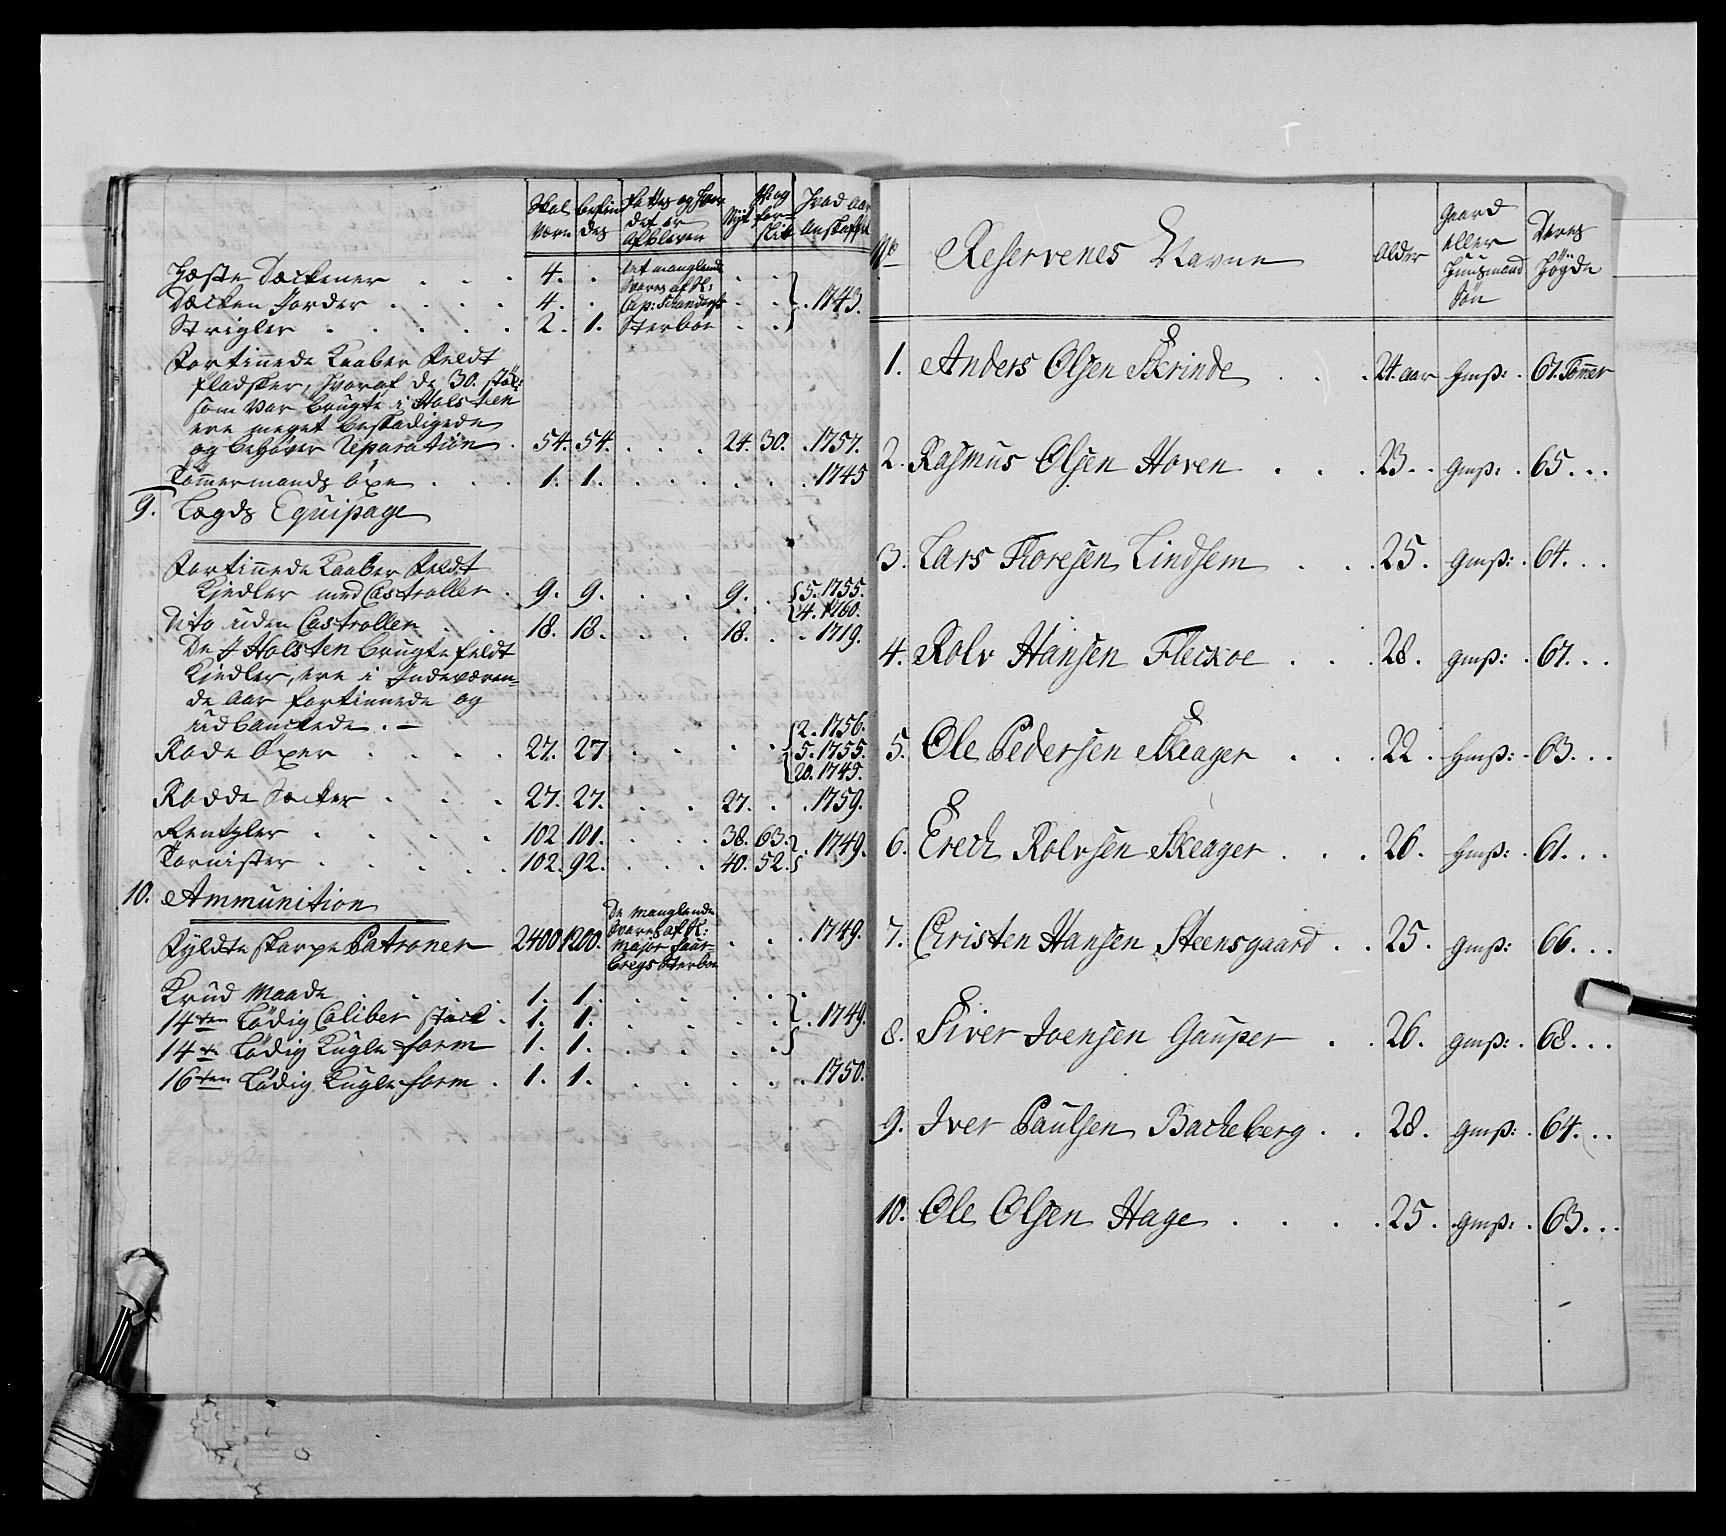 Skal Være | befindes | fattes og hvor det er afbleven | Nyt | forslit | Hvad aar anskaffet
Hæste Dæckener . . . 4. . Det manglende
Dæcken Jorder . . . . 4. . svares af Sl: Cap: . . 1743.
Strigler . . . . . 2. 1. Sterboe . .
Fortinnede Kaaber Feldt
fladsker, hvoraf de 30. stk:
som var brugte i Holsteen
ere meget beskadigede
og behøver Reparation . 54. 54. . . . 24. 30. . 1757.
Tømmermands Øxe . . . 1. 1. . . . . . . 1745
9. Lægds Equipage
Fortinnede Kaaber Feldt
Kiedler med Castroller . 9. 9. . . 9. . { 5. 1755.
{ 4. 1760.
Dito uden Castroller . . 18. 18. . . 18. . . 1719.
De i Holsten brugte feldt
Kiedler, ere i Indeværen-
de aar fortinnede og
udbanckede . —
{ 2. 1756.
Rode Øxer . . . . 27. 27 . . . . { 5. 1755.
{ 20. 1745.
Rodde Sæcker . . . 27. 27. . . 27. . . 1759.
Rentzler . . . . 102 101. . . . 38. 63. } . 1749.
Tornister . . . . 102. 92. . . . 40. 52. }
10. Ammunition
Fyldte skarpe Patroner 2400 1200. De manglende svares af Sl: Major Sterboe . . . 1749.
Krud Maade . . . 1. 1. . . . . .
14ten Lødig Caliber stock . 1. 1. . . . . } . 1749.
14ten Lødig Kugle form 1. 1. . . . .
16ten Lødig Kugle form . 1. 1. . . . . . 1750.
No | Reservenes Navne | Alder | Gaard eller Huusmand Søn | Deres Høyde
1. Anders Olsen Skrinde . . . 24. aar Hmß: . 67. Tommer
2. Rasmus Olsen Hoven . . . 23. . Gmß: . 65. . .
3. Lars Thoresen Lindsem . . . 25. Gmß: . 64. . .
4. Rolv Hansen Fleckoe . . . 28. Gmß: . 67. . .
5. Ole Pedersen Skeager . . . 22 . Hmß: . 63. . .
6. Erech Rolvsen Skeager . . . 26. Hmß: . 61. . .
7. Christen Hansen Steensgaard . . 25. Gmß: 66. . .
8. Siver Joensen Gauper . . 26. Gmß: . 68. . .
9. Iver Paulsen Bacheberg . . 28. Gmß: . 64. . .
10. Ole Olsen Hage . . . . 25. Gmß: . 63. . .